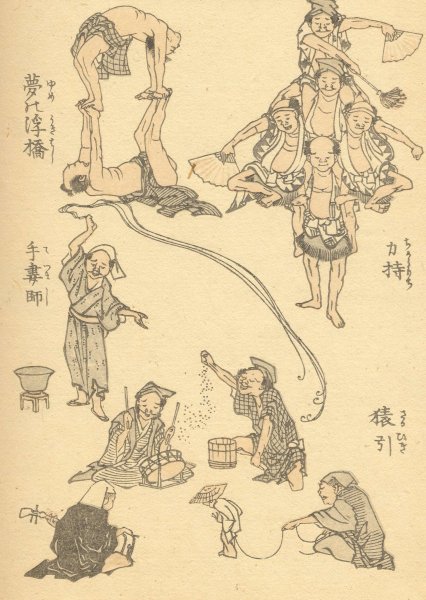 夢の浮橋
ゆめ うきはし
力持
ちからもち
手妻師
てづまし
猿引
さるひき